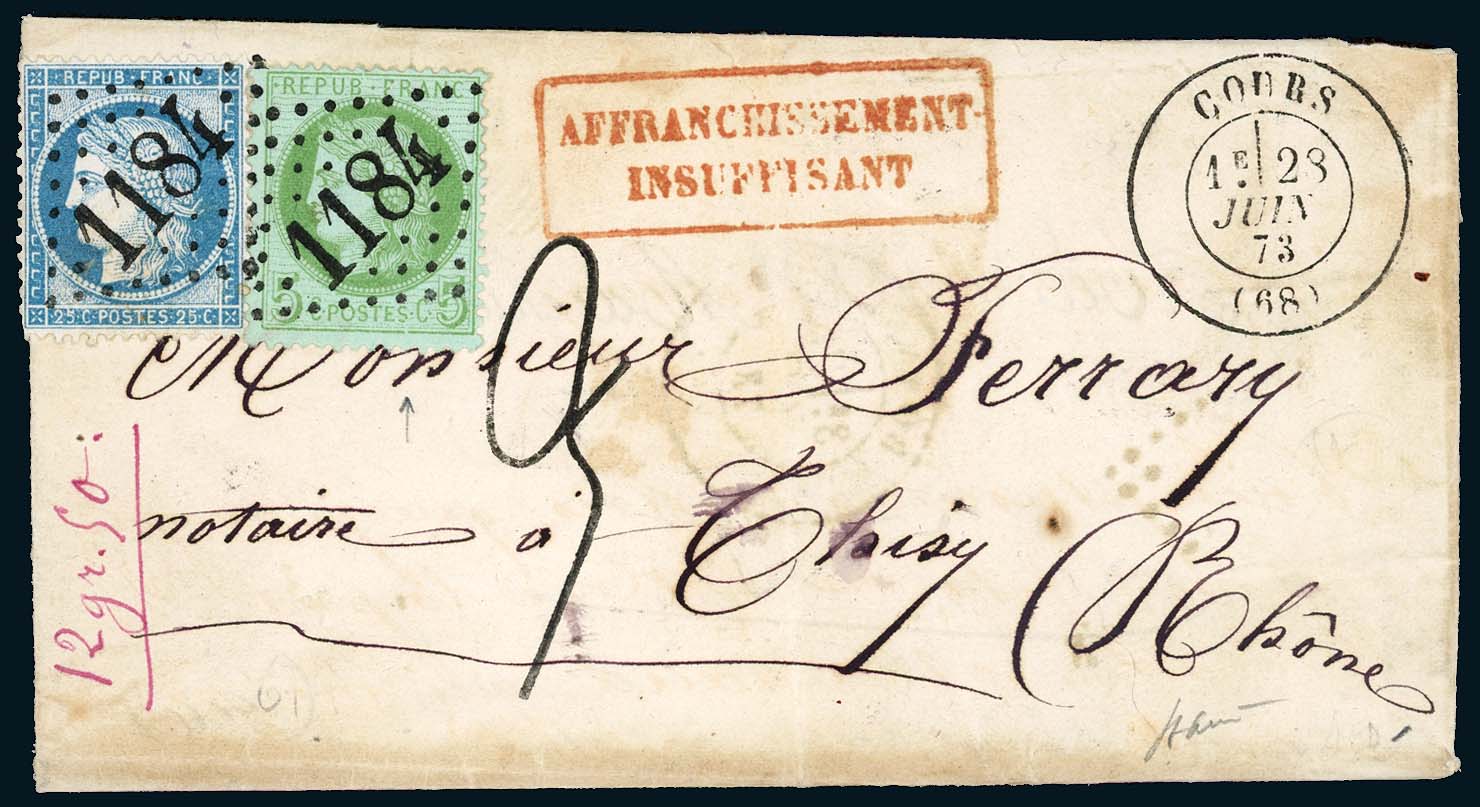 REPUB·FRANC·
1184
25·C·POSTES·25·C
REPUB·FRANC
1184
5·C·POSTES·C·5
AFFRANCHISSEMENT-
INSUFFISANT
COURS
1E 28
JUIN
73
(68)
Monsieur Ferrary
notaire à Thisy (Rhône
12 gr. 50: